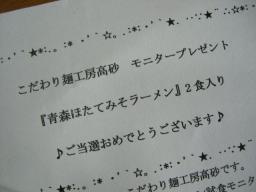 こだわり麺工房高砂　モニタープレゼント
『青森ほたてみそラーメン』2食入り
♪ご当選おめでとうございます♪
こだわり麺工房高砂です。